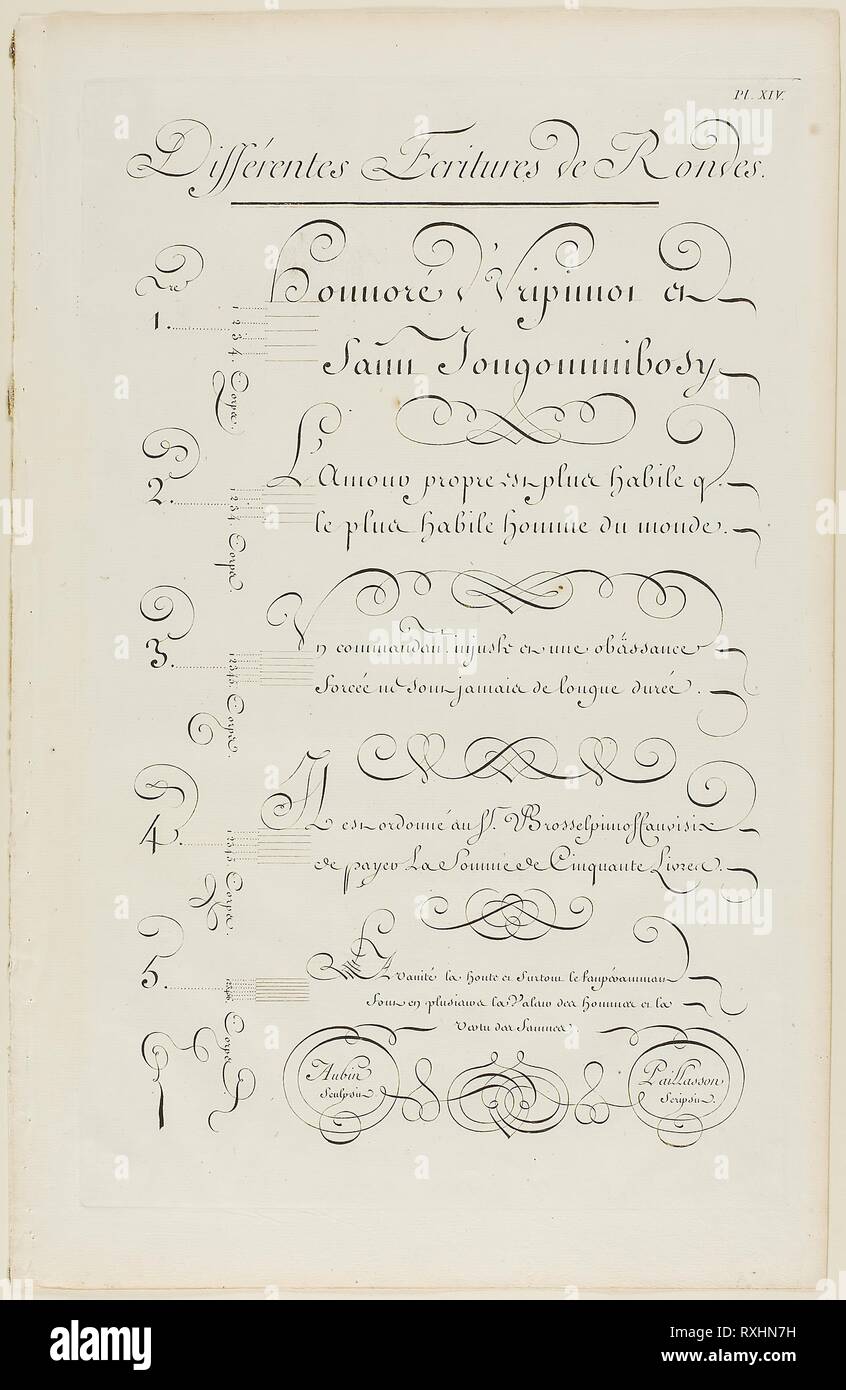 Pl. XIV.
Différentes Ecritures de Rondes.
1.
1 2 3 4. Corps.
Honnoré d'Vripimoi et
2.
1 2 3 4. Corps
L'Amour propre est plus habile q.
le plus habile homme du monde.
3.
1 2 3 4 5. Corps.
Un commandant injuste et une obäissance
forcée ne sont jamais de longue durée.
4.
1 2 3 4 5. Corps.
Il est ordonné au Sr.
de payer La Somme de Cinquante Livres.
5.
Corps
La vanité la honte et surtout le
sont en plusieurs la Valeur des hommes et la
Vertu des
Aubin
Sculpsit.
Paillasson
Scripsit.
alamy
Image ID: RXHN7H
www.alamy.com